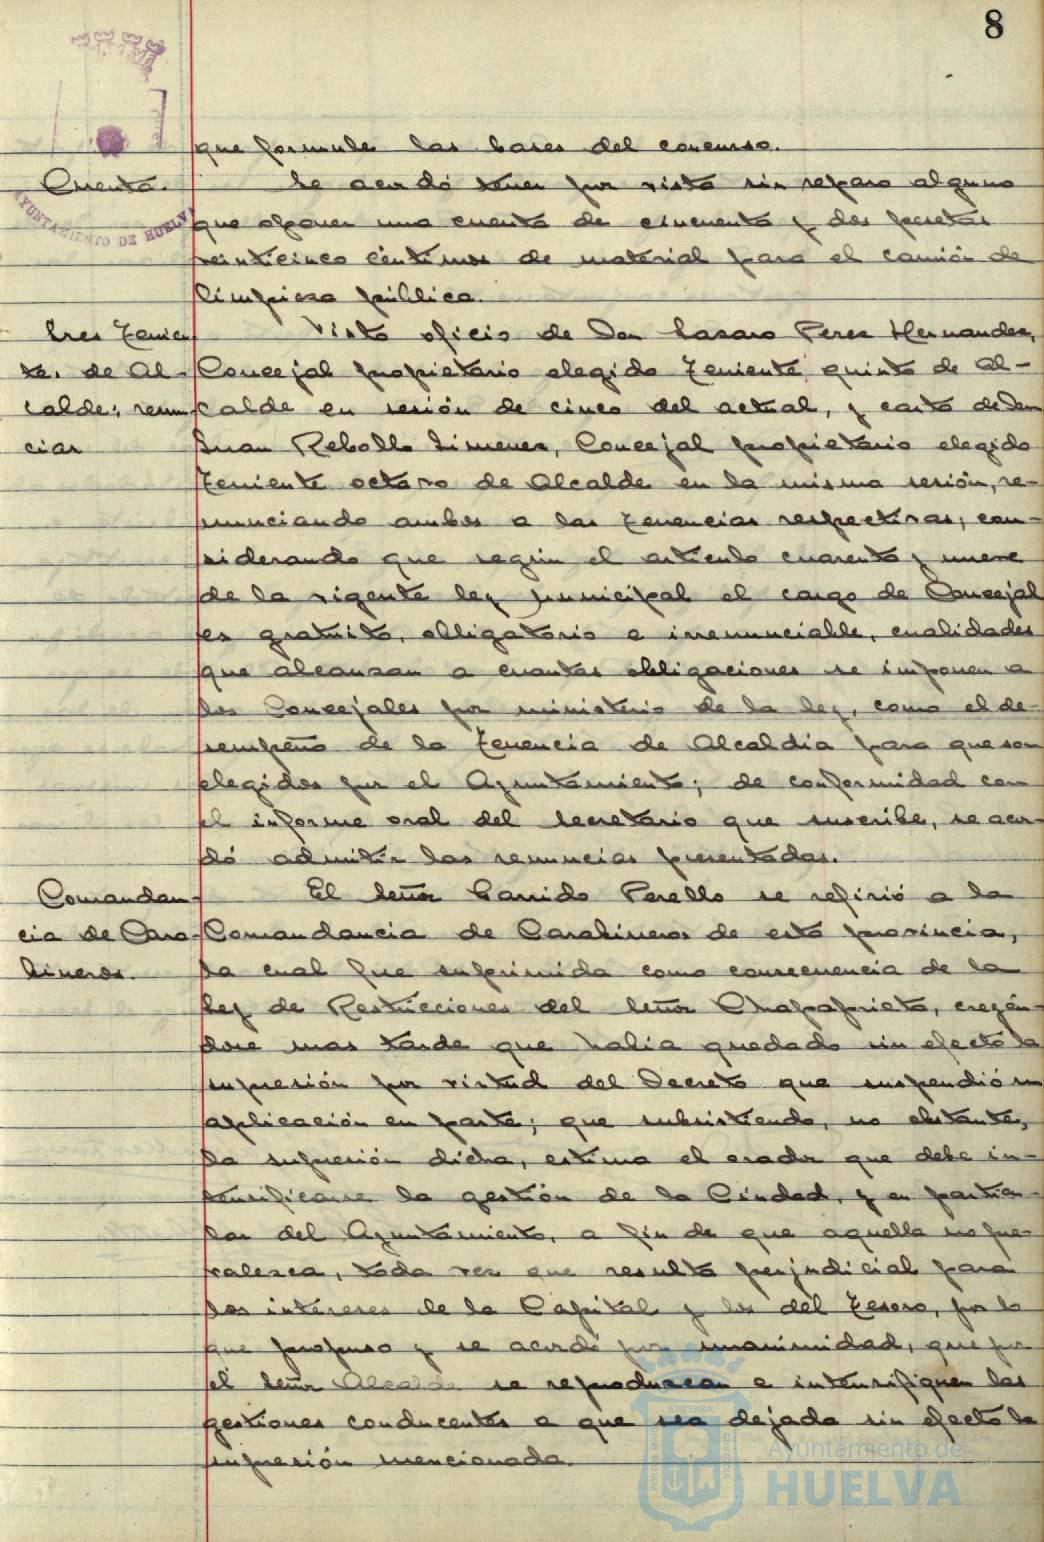 8
que formule las bases del concurso.
Cuenta. Se acordó tener por vista sin reparo alguno
que oponer una cuenta de cincuenta y dos pesetas
AYUNTAMIENTO DE HUELVA
veinticinco céntimos de material para el camión de
limpieza pública.
Tres Tenien- Visto oficio de Don Lazaro Perez Hernandez,
tes de Al- Concejal propietario elegido Teniente quinto de Al-
calde; renun- calde en sesión de cinco del actual, y carta de Don
cias Juan Rebollo Jimenez, Concejal propietario elegido
Teniente octavo de Alcalde en la misma sesión, re-
nunciando ambos a las Tenencias respectivas; con-
siderando que según el artículo cuarenta y nueve
de la vigente ley municipal el cargo de Concejal
es gratuito, obligatorio e irrenunciable, cualidades
que alcanzan a cuantas obligaciones se imponen a
los Concejales por ministerio de la ley, como el de-
sempeño de la Tenencia de Alcaldia para que son
elegidos por el Ayuntamiento; de conformidad con
el informe oral del Secretario que suscribe, se acor-
dó admitir las renuncias presentadas.
Comandan- El Señor Garrido Perello se refirió a la
cia de Cara- Comandancia de Carabineros de esta provincia,
bineros. la cual fue suprimida como consecuencia de la
Ley de Restricciones del Señor Chapaprieta, creyén-
dose mas tarde que habia quedado sin efecto la
supresión por virtud del Decreto que suspendió su
aplicación en parte; que subsistiendo, no obstante,
la supresión dicha, estima el orador que debe in-
tensificarse la gestión de la Ciudad, y en particu-
lar del Ayuntamiento, a fin de que aquella no pre-
valezca, toda vez que resulta perjudicial para
los intereses de la Capital y los del Tesoro, por lo
que propuso y se acordó por unanimidad, que por
el Señor Alcalde se reproduzcan e intensifiquen las
gestiones conducentes a que sea dejada sin efecto la
supresión mencionada.
Ayuntamiento de
HUELVA